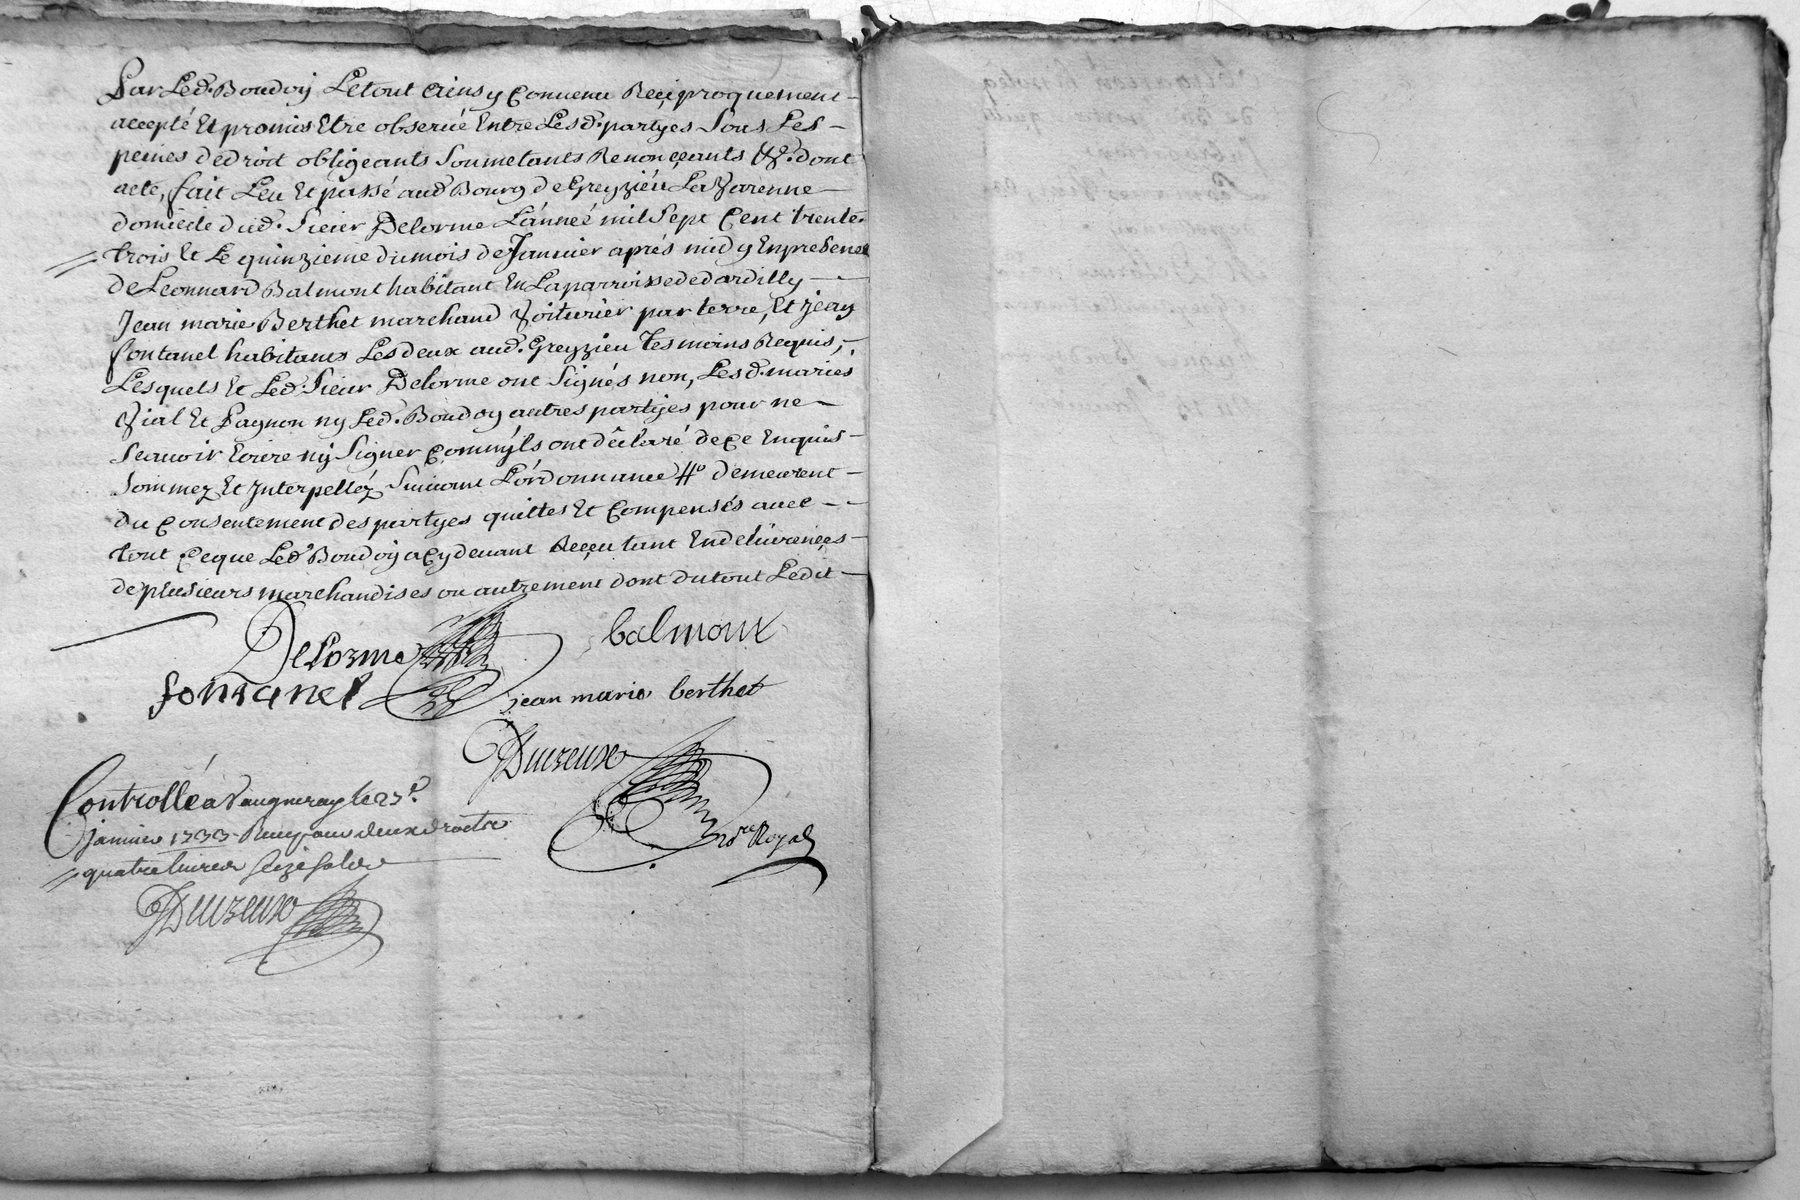 Par Led. Boudoy Letout Ainsy Convenu Reciproquement
accepté Et promis Etre observé Entre Lesd. partyes Sous Les
peines de droit obligeants Soumetants Renonçeants &c. dont
acte, fait Leu Et passé aud. Bourg de Greyzieu La Varenne
domicile dud. Sieur Delorme L'année mil Sept Cent trente
trois Et Le quinzieme du mois de Janvier aprés midy En presence
de Leonnard Balmont habitant En La parroisse de dardilly
Jean marie Berthet marchand Voiturier par terre, Et Jean
fontanel habitants Les deux aud. Greyzieu Tesmoins Requis,
Lesquels Et Led. Sieur Delorme ont Signés non, Lesd. mariés
Vial Et Pagnon ny Led. Boudoy autres partyes pour ne
Scavoir Ecrire ny Signer Comm'yls ont déclaré de Ce Enquis
Sommez Et Interpelléz Suivant L'ordonnance # demeurent
du Consentement des partyes quittes Et Compensés avec
tout Ceque Led. Boudoy a Cy devant Reçeu tant En delivrençes
de plusieurs marchandises ou autrement dont du tout Ledit
Delorme balmont
fontanel jean marie berthet
Duzeux
nore. Royal
Controllé a Vaugneray le 23e.
janvier 1733 Reçu pour deux droits
quatre livres seize sols
Duzeux